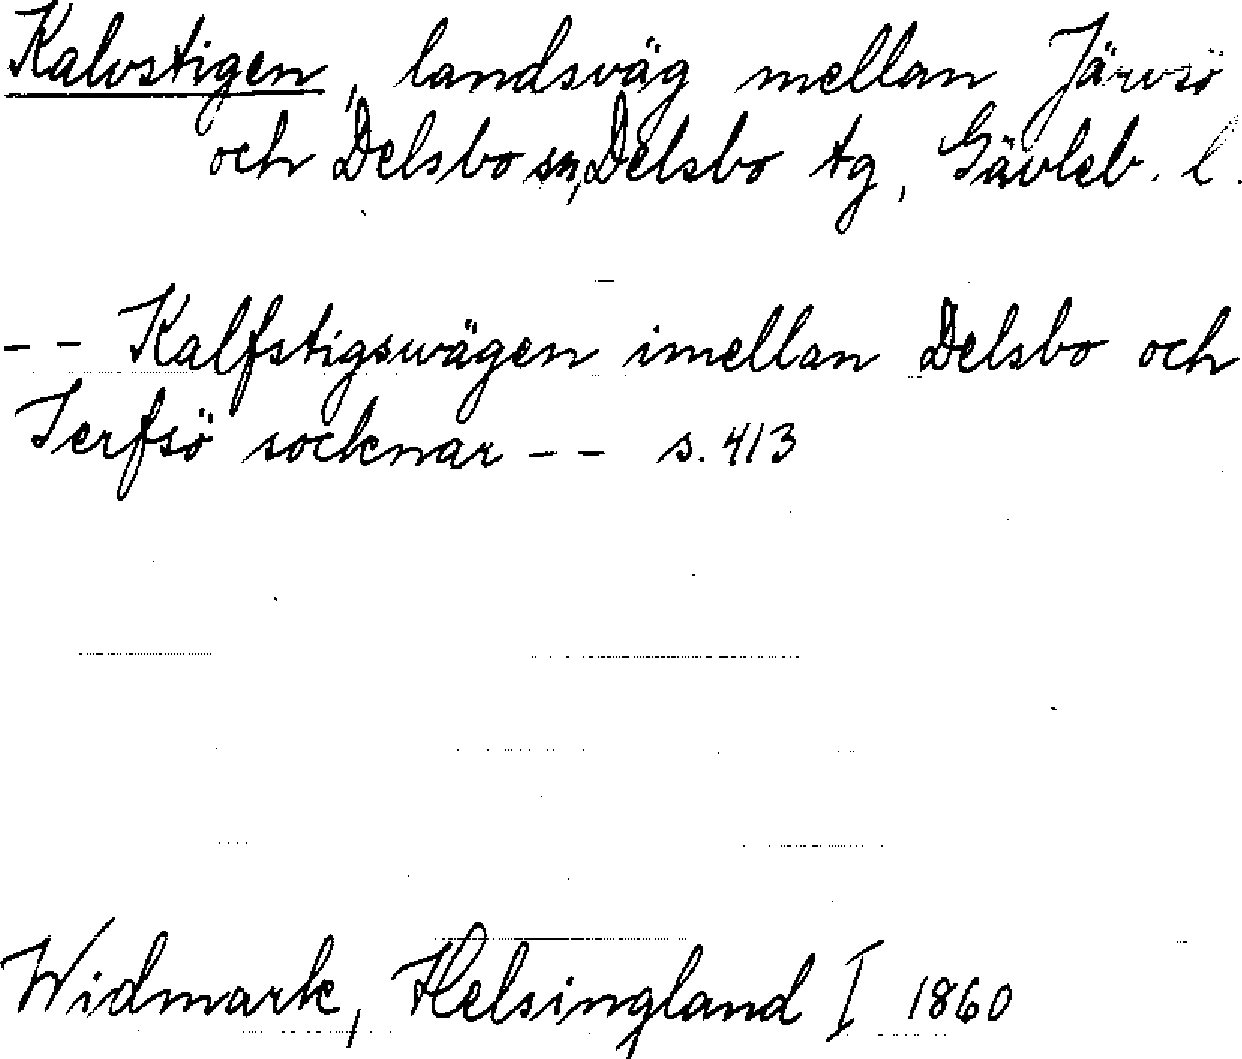 Kalvstigen, landsväg mellan Järvsö
och Delsbo sn, Delsbo tg, Gävleb. l.
-- Kalfstigswägen imellan Delsbo och
Jerfsö socknar -- s. 413
Widmark, Helsingland I 1860